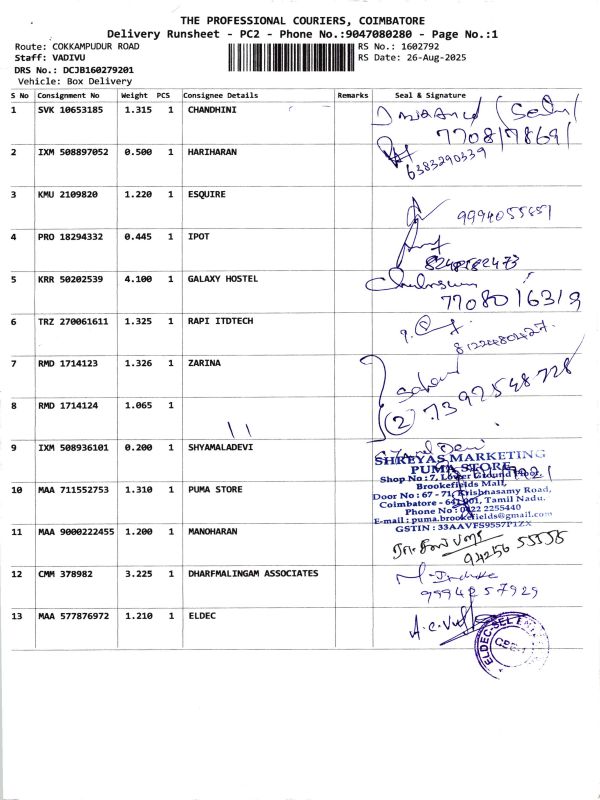 THE PROFESSIONAL COURIERS, COIMBATORE
Delivery Runsheet - PC2 - Phone No.:9047080280 - Page No.:1
Route: COKKAMPUDUR ROAD
RS No.: 1602792
Staff: VADIVU
RS Date: 26-Aug-2025
DRS No.: DCJB160279201
Vehicle: Box Delivery
S No Consignment No Weight PCS Consignee Details Remarks Seal & Signature
1 SVK 10653185 1.315 1 CHANDHINI
7708178691
2 IXM 508897052 0.500 1 HARIHARAN
6383290339
3 KMU 2109820 1.220 1 ESQUIRE
9994055651
4 PRO 18294332 0.445 1 IPOT
8248182473
5 KRR 50202539 4.100 1 GALAXY HOSTEL
7708016319
6 TRZ 270061611 1.325 1 RAPI ITDTECH
7 RMD 1714123 1.326 1 ZARINA
8 RMD 1714124 1.065 1
(2) 7397548728
11
9 IXM 508936101 0.200 1 SHYAMALADEVI
SHREYAS MARKETING
PUMA STORE
Shop No : 7, Lower Ground Floor,
Brookefields Mall,
10 MAA 711552753 1.310 1 PUMA STORE
Door No : 67 - 71, Krishnasamy Road,
Coimbatore - 641 001, Tamil Nadu.
Phone No : 0422 2255440
E-mail : puma.brookefields@gmail.com
GSTIN : 33AAVFS9557P1ZX
11 MAA 9000222455 1.200 1 MANOHARAN
94256 55556
12 CMM 378982 3.225 1 DHARFMALINGAM ASSOCIATES
9994257929
13 MAA 577876972 1.210 1 ELDEC